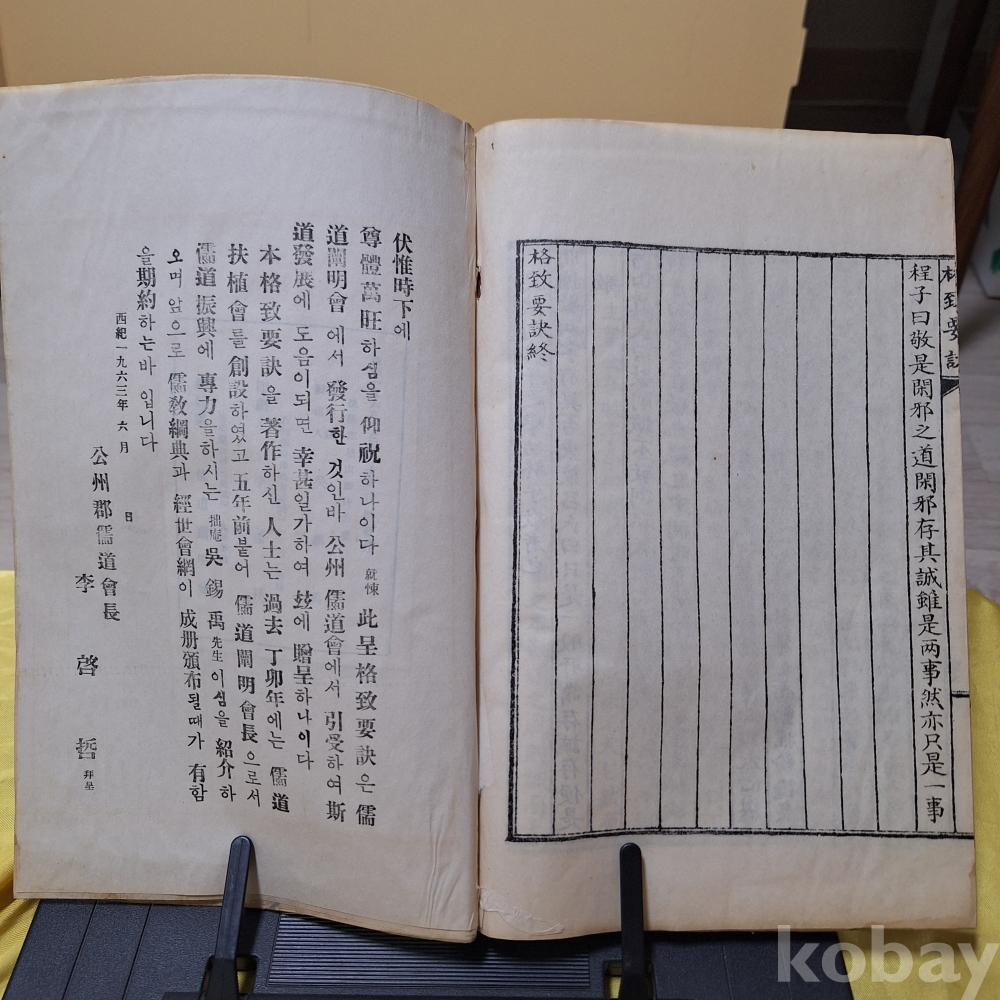 格致要訣
程子曰敬是閑邪之道閑邪存其誠雖是两事然亦只是一事
格致要訣終
伏惟時下에
尊體萬旺하심을 仰祝하나이다 就悚 此呈格致要訣은 儒
道闡明會에서 發行한 것인바 公州 儒道會에서 引受하여 斯
道發展에 도움이되면 幸甚일가하여 玆에 贈呈하나이다
本格致要訣을 著作하신 人士는 過去 丁卯年에는 儒道
扶植會를 創設하였고 五年前붙어 儒道闡明會長으로서
儒道振興에 專力을하시는 拙庵 吳錫禹 先生이심을 紹介하
오며 앞으로 儒敎綱典과 經世會網이 成册頒布될때가 有함
을 期約하는바 입니다
西紀一九六三年 六月 日
公州郡儒道會長
李啓哲 拜呈
kobay